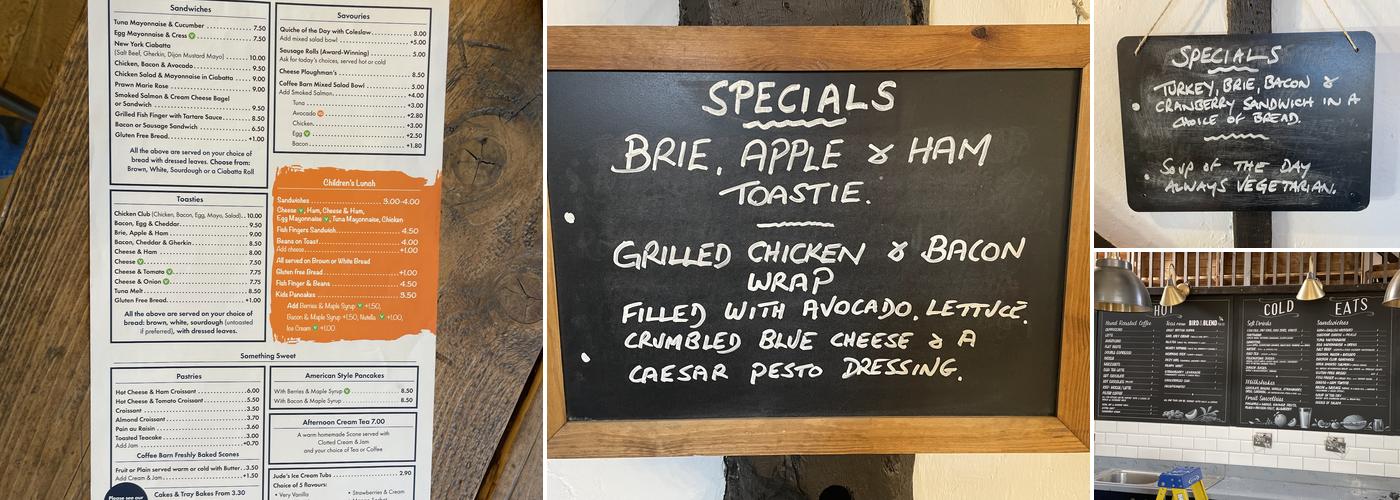 Sandwiches
Tuna Mayonnaise & Cucumber 7.50
Egg Mayonnaise & Cress V 7.50
New York Ciabatta
(Salt Beef, Gherkin, Dijon Mustard Mayo) 10.00
Chicken, Bacon & Avocado 9.50
Chicken Salad & Mayonnaise in Ciabatta 9.00
Prawn Marie Rose 9.00
Smoked Salmon & Cream Cheese Bagel
or Sandwich 9.50
Grilled Fish Finger with Tartare Sauce 8.50
Bacon or Sausage Sandwich 6.50
Gluten Free Bread +1.00
All the above are served on your choice of
bread with dressed leaves. Choose from:
Brown, White, Sourdough or a Ciabatta Roll
Toasties
Chicken Club (Chicken, Bacon, Egg, Mayo, Salad) 10.00
Bacon, Egg & Cheddar 9.50
Brie, Apple & Ham 9.00
Bacon, Cheddar & Gherkin 8.50
Cheese & Ham 8.00
Cheese V 7.50
Cheese & Tomato V 7.75
Cheese & Onion V 7.75
Tuna Melt 8.50
Gluten Free Bread +1.00
All the above are served on your choice of
bread: brown, white, sourdough (untoasted
if preferred), with dressed leaves.
Savouries
Quiche of the Day with Coleslaw 8.00
Add mixed salad bowl +5.00
Sausage Rolls (Award-Winning) 5.00
Ask for today's choices, served hot or cold
Cheese Ploughman's 8.50
Coffee Barn Mixed Salad Bowl 5.00
Add Smoked Salmon +4.00
Tuna +3.00
Avocado +2.80
Chicken +3.00
Egg V +2.50
Bacon +1.80
Children's Lunch
Sandwiches 3.00-4.00
Cheese V, Ham, Cheese & Ham,
Egg Mayonnaise V, Tuna Mayonnaise, Chicken
Fish Fingers Sandwich 4.50
Beans on Toast 4.00
Add cheese +1.00
All served on Brown or White Bread
Gluten free Bread +1.00
Fish Finger & Beans 4.50
Kids Pancakes 3.50
Add Berries & Maple Syrup V +1.50,
Bacon & Maple Syrup +1.50, Nutella V +1.00,
Ice Cream V +1.00
Something Sweet
Pastries
Hot Cheese & Ham Croissant 6.00
Hot Cheese & Tomato Croissant 5.50
Croissant 3.50
Almond Croissant 3.70
Pain au Raisin 3.60
Toasted Teacake 3.00
Add Jam +0.70
Coffee Barn Freshly Baked Scones
Fruit or Plain served warm or cold with Butter 3.50
Add Cream & Jam +1.50
Cakes & Tray Bakes From 3.30
Please see our
American Style Pancakes
With Berries & Maple Syrup V 8.50
With Bacon & Maple Syrup 8.50
Afternoon Cream Tea 7.00
A warm homemade Scone served with
Clotted Cream & Jam
and your choice of Tea or Coffee
Jude's Ice Cream Tubs 2.90
Choice of 5 flavours:
• Very Vanilla
• Strawberries & Cream
SPECIALS
BRIE, APPLE & HAM
TOASTIE.
GRILLED CHICKEN & BACON
WRAP
FILLED WITH AVOCADO, LETTUCE,
CRUMBLED BLUE CHEESE & A
CAESAR PESTO DRESSING.
SPECIALS
TURKEY, BRIE, BACON &
CRANBERRY SANDWICH IN A
CHOICE OF BREAD.
SOUP OF THE DAY
ALWAYS VEGETARIAN.
HOT
Hand Roasted Coffee
BIRD & BLEND
COLD EATS
Soft Drinks
Sandwiches
Milkshakes
Fruit Smoothies